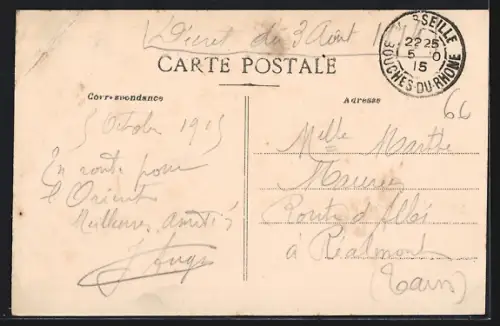 Décret du 3 Août
CARTE POSTALE
MARSEILLE
22 25
5 10
15
BOUCHES-DU-RHÔNE
Correspondance
Adresse
66
5 Octobre 1915
En route pour
l'Orient
Meilleures amitiés
Melle Marthe
Route d'Albi
à Réalmont
(Tarn)